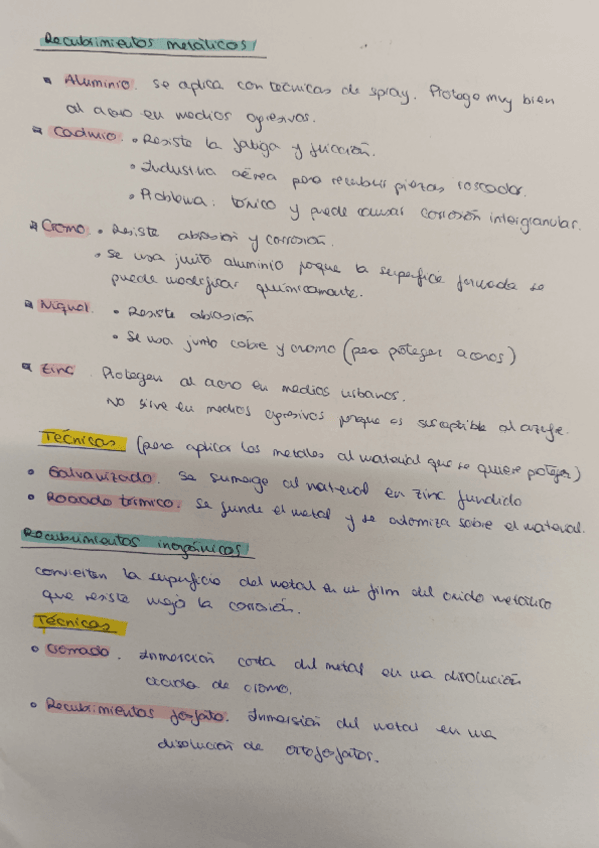 Recubrimientos metálicos
Aluminio. se aplica con técnicas de spray. Protege muy bien
al acero en medios agresivos.
Cadmio. • Resiste la fatiga y fricción.
• Industria aérea para recubrir piezas roscadas.
• Problema: tóxico y puede causar corrosión intergranular.
Cromo • Resiste abrasión y corrosión.
• Se usa junto aluminio porque la superficie formada se
puede modificar químicamente.
Niquel. • Resiste abrasión
• Se usa junto cobre y cromo (para proteger aceros)
Zinc. Protegen al acero en medios urbanos.
No sirve en medios agresivos porque es susceptible al azufre.
Técnicas (para aplicar los metales al material que se quiere proteger)
• Galvanizado. Se sumerge al material en zinc fundido
• Rociado térmico. Se funde el metal y se atomiza sobre el material.
Recubrimientos inorgánicos
Convierten la superficie del metal en un film del oxido metálico
que resiste mejor la corrosión.
Técnicas
• Cromado. Inmersión corta del metal en una disolución
ácida de cromo.
• Recubrimientos fosfato. Inmersión del metal en una
disolución de ortofosfatos.